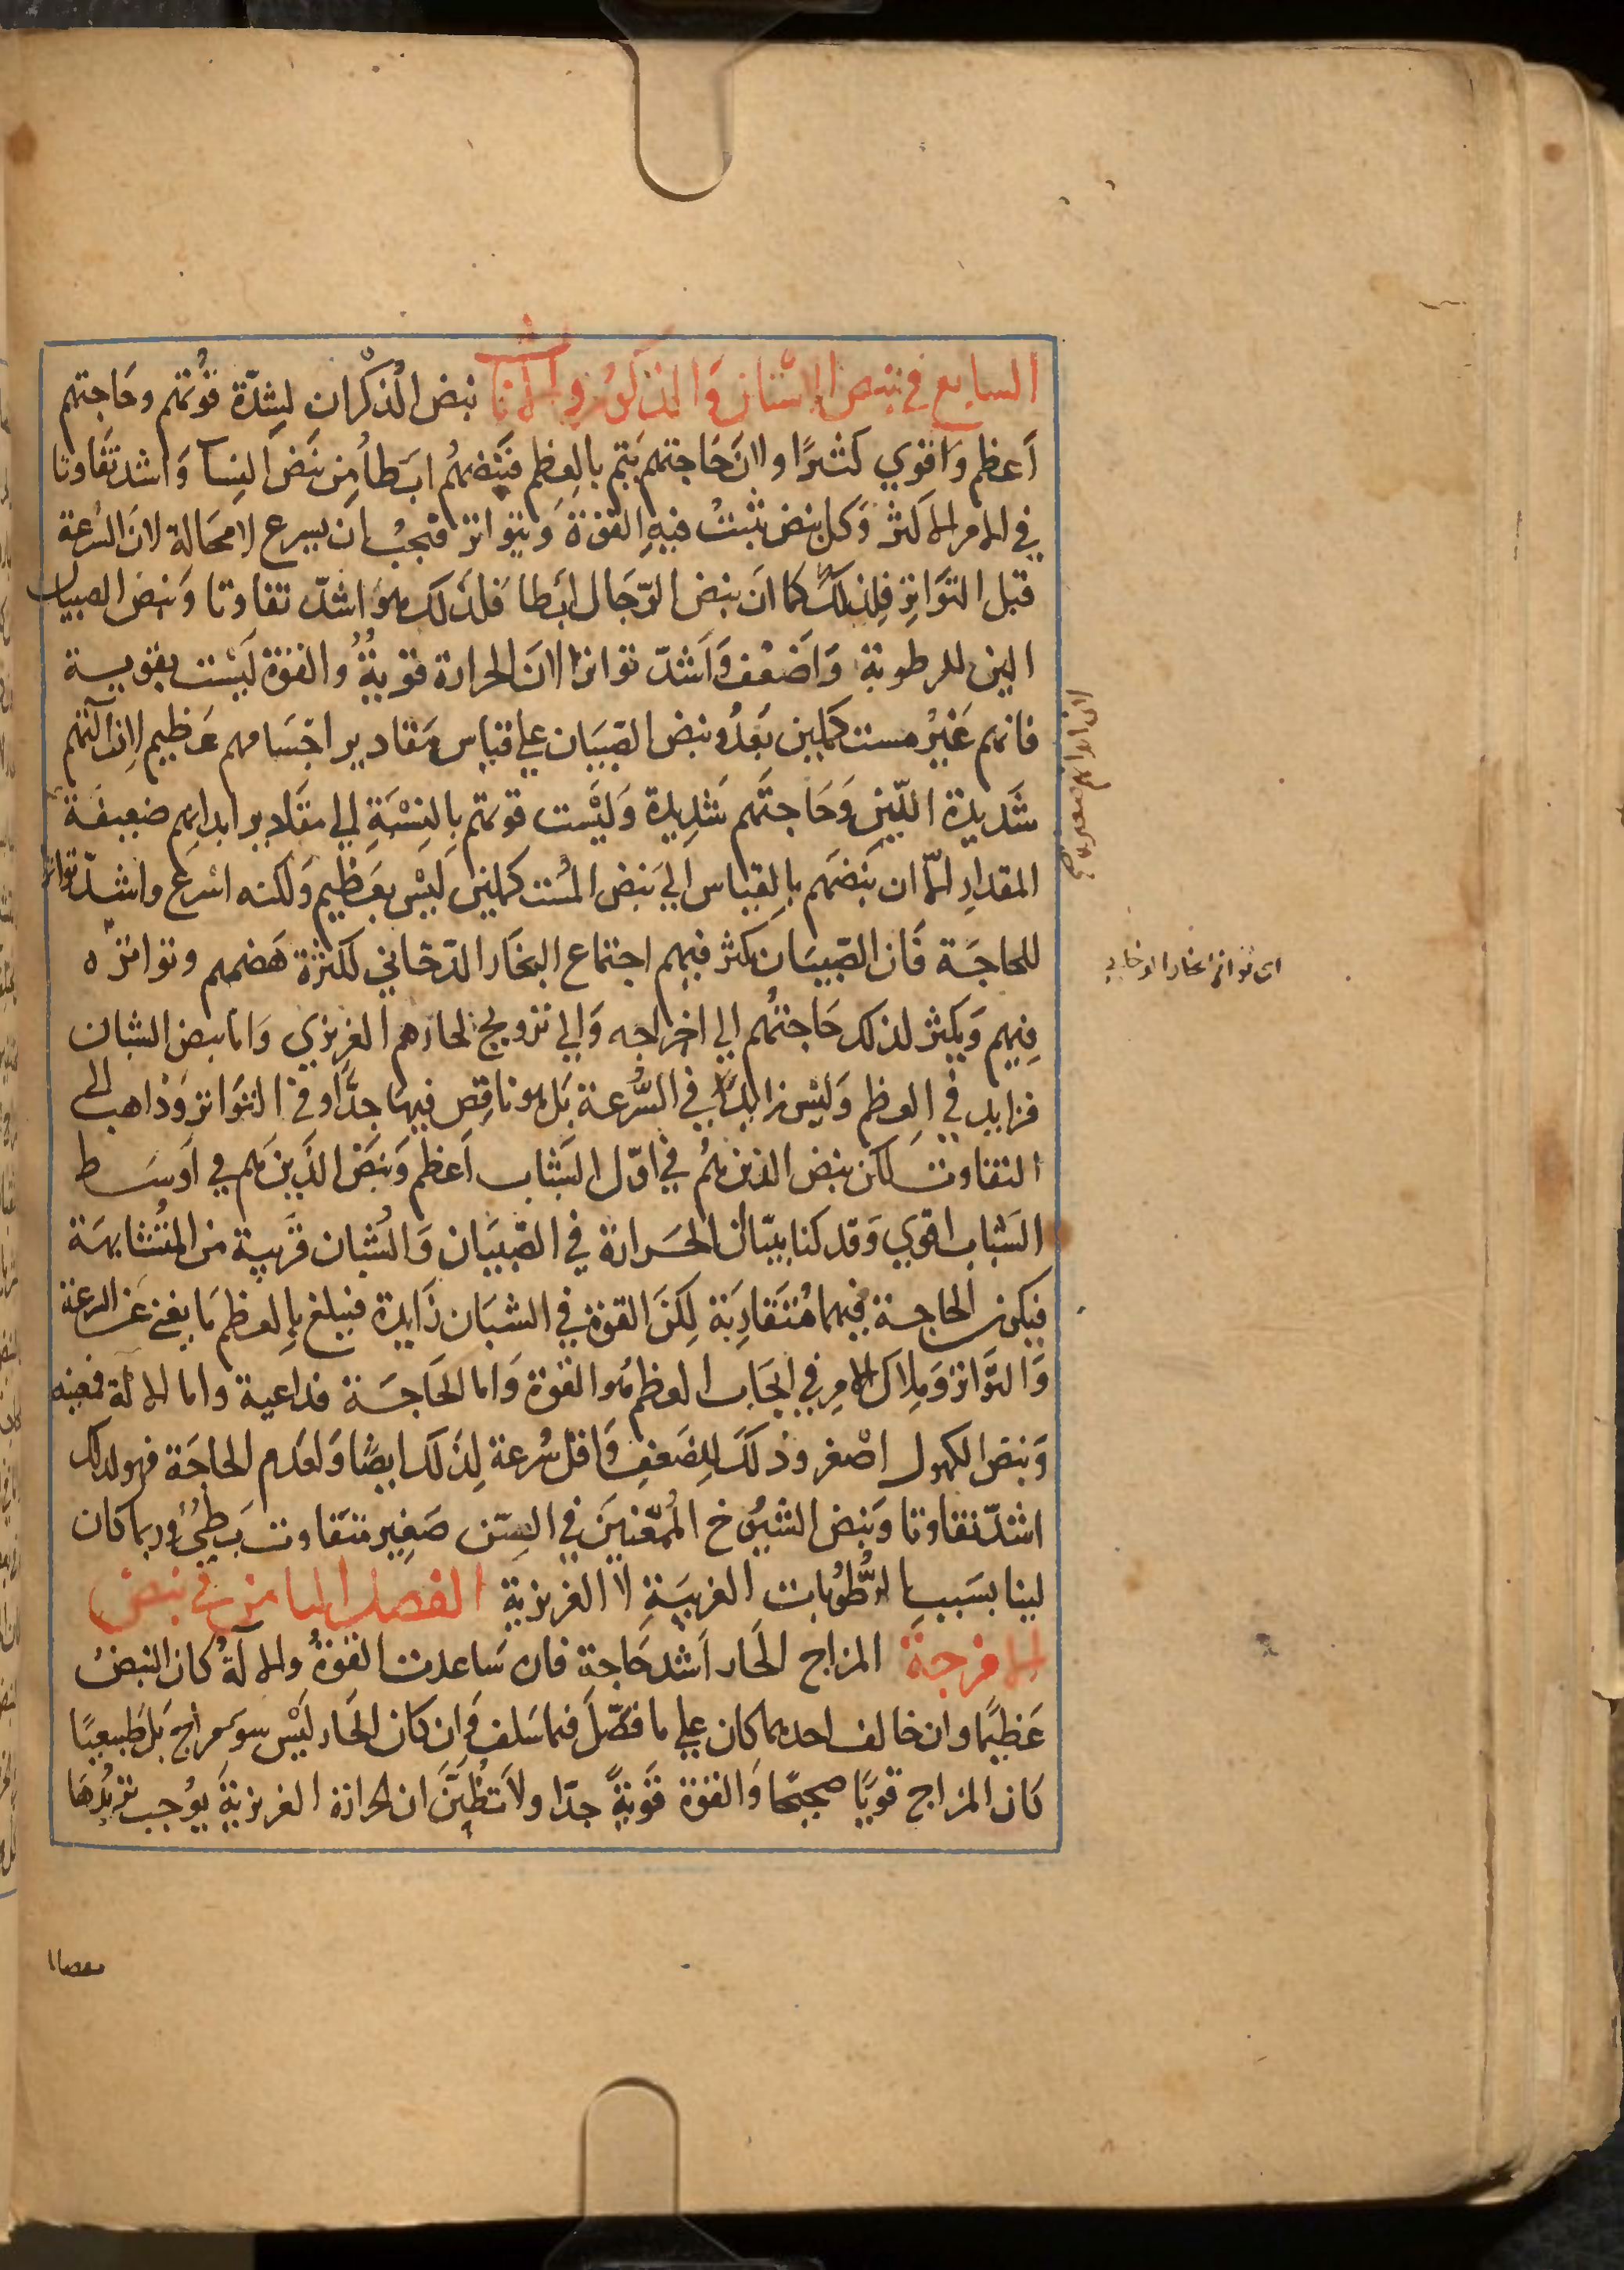 السابع في نبض الاسنان والذكور والاناث نبض الذكران لِشدّة قُوّتهم وحَاجتهم
اَعظم وَاقوي كثيرًا ولانَ حَاجتهم يَتم بالعِظم فنَبضهُم ابَطأ مِن نَبضَ النِسآ وَاشد تَفَاوتا
في الامر الاكثر وَكل نبض تثبتُ فيهِ القوّة وَيتواتر فيجبُ اَن يسرع لا محَالة لانَ السُرعة
قبل التوَاتر فلِذلكَ كما انَ نبض الرّجَال ابَطا فلذلك هوَ اشدّ تفاوتا وَنبض الصبيان
الين للرطوبة وَاَضعُف وَاَشدّ تواترا لانَ الحرارة قويةُ وُالقوّة لَيسْت بقويــة
فانهم غَيْر مستكملين بَعدُ ونبض الصّبيَان علي قياس مَقادير اجْسَامهم عَظيم لاِن آلتهم
شَديدة اللّين وَحَاجتَهم شَدِيدة وَليَْست قوتهم بِالنِسْبَةِ الي مقادير ابدانهم ضعيفَة
المقدارِ الاّ ان نَبضهم بالقياس الي نَبض المُستكملين لَيسْ بعَظيم وَلكنه اسْرَع واشدّ تواترا
للحاجَـة فَان الصّبيَان يكثر فيهم اجتماع البخَار الدّخاني لكثرة هَضمهم وتواتره
فِيهم وَيكثر لذلكَ حَاجتُهم الي اخرَاجه وَالي ترويح لحارهم الغريزي وَاما نبض الشبان
فزايد في العظم وَليَس زايدًا في السُّرعـة بَل هو ناقِص فيهَا جدًّا وفي التوَاتر وَذاهب الى
التفاوت لكن نبض الذين هُم في اوّل الشَباب اَعظم وَنبَض الذَين هم في اَوسَـط
الشَباب اقوي وَقد كنا بيّنا ان الحَـرارة في الصّبيَان وَالشُبان قرَيبـة من المتُشابهَـة
فيكون الحاجـة فيهما مُتَقاربَة لِكنَ القوة في الشبَان زَايدة فيبلغ بالِعظم مَا يغني عَن السرعة
وَالتوَّاتر وَمِلاك الامِر في ايجَاب العظم هُو القوّة وَاما الحَاجَـة فداعية واما الالة فمعينه
وَنبض الكهول اصْغر وذلكَ لِلضَعفِ وَاقل سُرعة لِذَلكَ ايضًا وَلعَدم الحاجَة فهو لذلك
اشدّ تفاوتا وَنبض الشيُوخ المُمّعنِينَ في السِّن صَغِير متفاوت بَطئ وربما كان
لينا بسَبب الرُّطوُبات الغريبَةِ لا الغريزية الفصل الثامن في نبض
الامزجة المزاج الحَار اَشد حَاجة فان سَاعدت القوةُ والآلةُ كان النبضُ
عَظيمًا وان خالف احدهما كان علي ما فصّل فيما سَلف وَان كان الحَار لَيْس سوء مزاج بَل طَبيعيًا
كَان المزاج قويًا صحيحًا وَالقوّة قَويةً جدّا ولاَ تظُنَّنَ ان الحرارة الغريزيةَ يوُجب تزيُّدهَا
اى تواتر البخار الدخانى